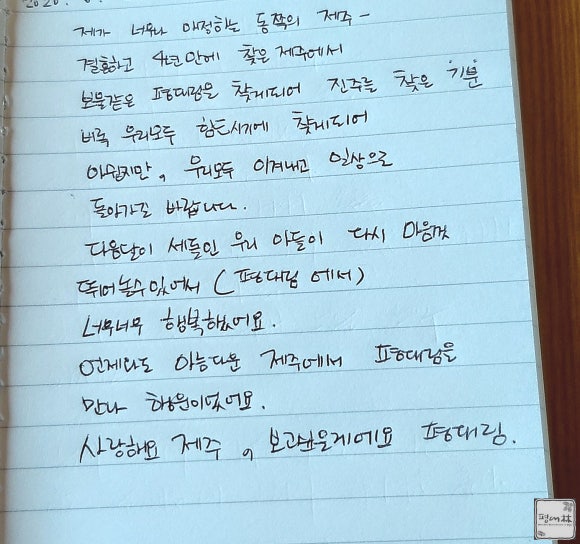 2020.
제가 너무나 애정하는 동쪽의 제주-
결혼하고 4년만에 찾은 제주에서
보물같은 평대림을 찾게되어 진주를 찾은 기분
비록 우리모두 힘든시기에 찾게되어
아쉽지만, 우리모두 이겨내고 일상으로
돌아가길 바랍니다.
다음달이 세돌인 우리 아들이 다시 마음껏
뛰어놀수있어서 (평대림에서)
너무너무 행복했어요.
언제나도 아름다운 제주에서 평대림을
만나 행운이었어요.
사랑해요 제주, 보고싶을게에요 평대림.
평대林